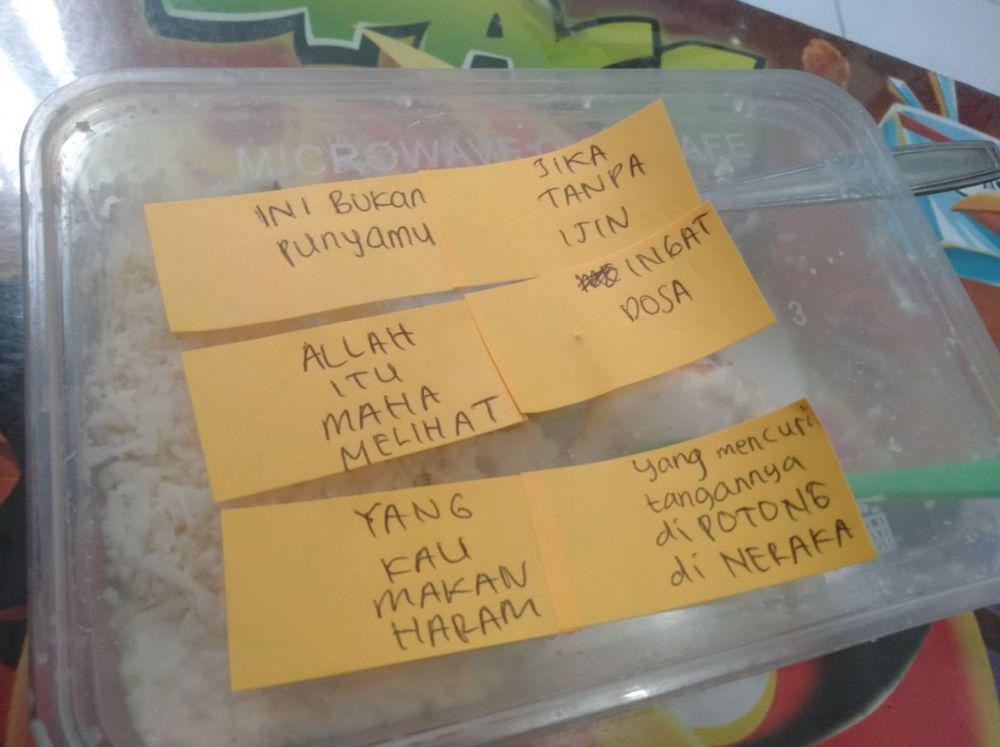 MICROWAVE
AFE
INI BUKAN
PUNYAMU
JIKA
TANPA
IJIN
INGAT
DOSA
ALLAH
ITU
MAHA
MELIHAT
YANG
KAU
MAKAN
HARAM
yang mencuri
tangannya
di POTONG
di NERAKA
3